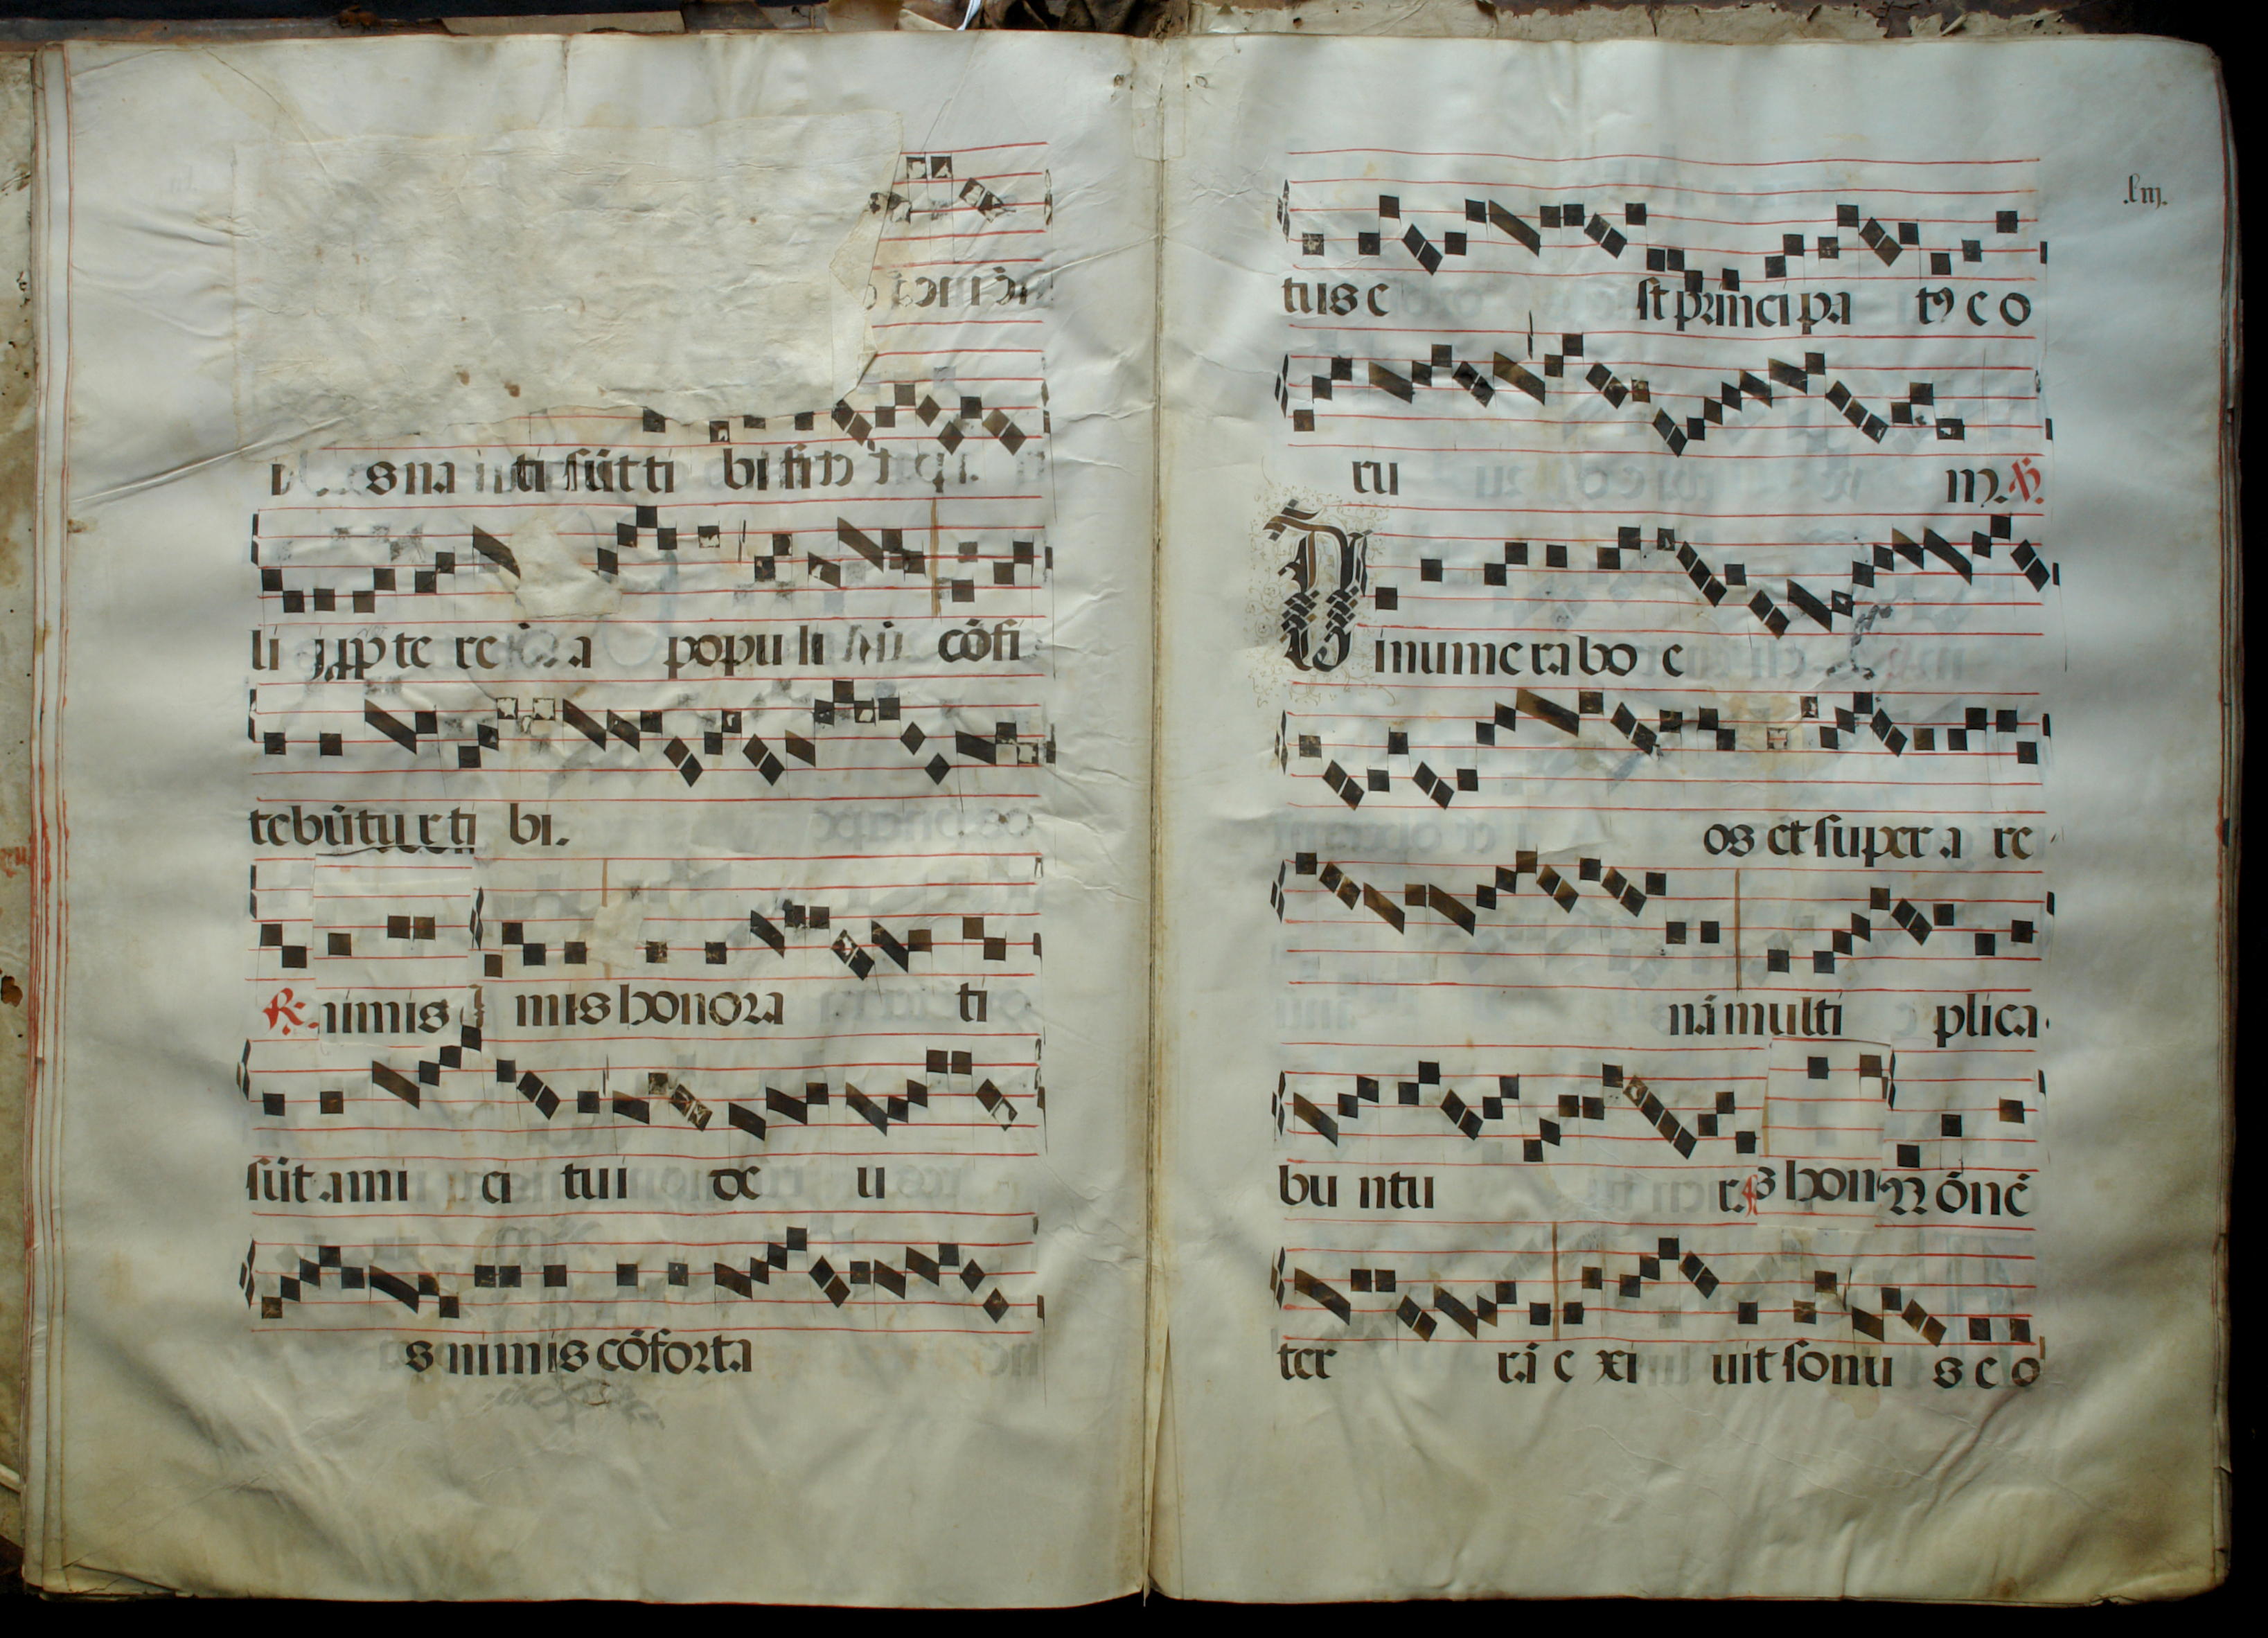 s na ti sūt ti bi fi
li j ꝓpte re a popu li cōfi
tebūtur ti bi.
℟. nimis mis honora ti
sūt ami ci tui de u
s nimis cōforta
.liij.
tus e st principa tꝰ e o
ru m. ℣.
Dinumerabo e
os et super a re
nā multi plica
bu ntu r. s hon N ōnē
ter rā e xi uit sonu s e o